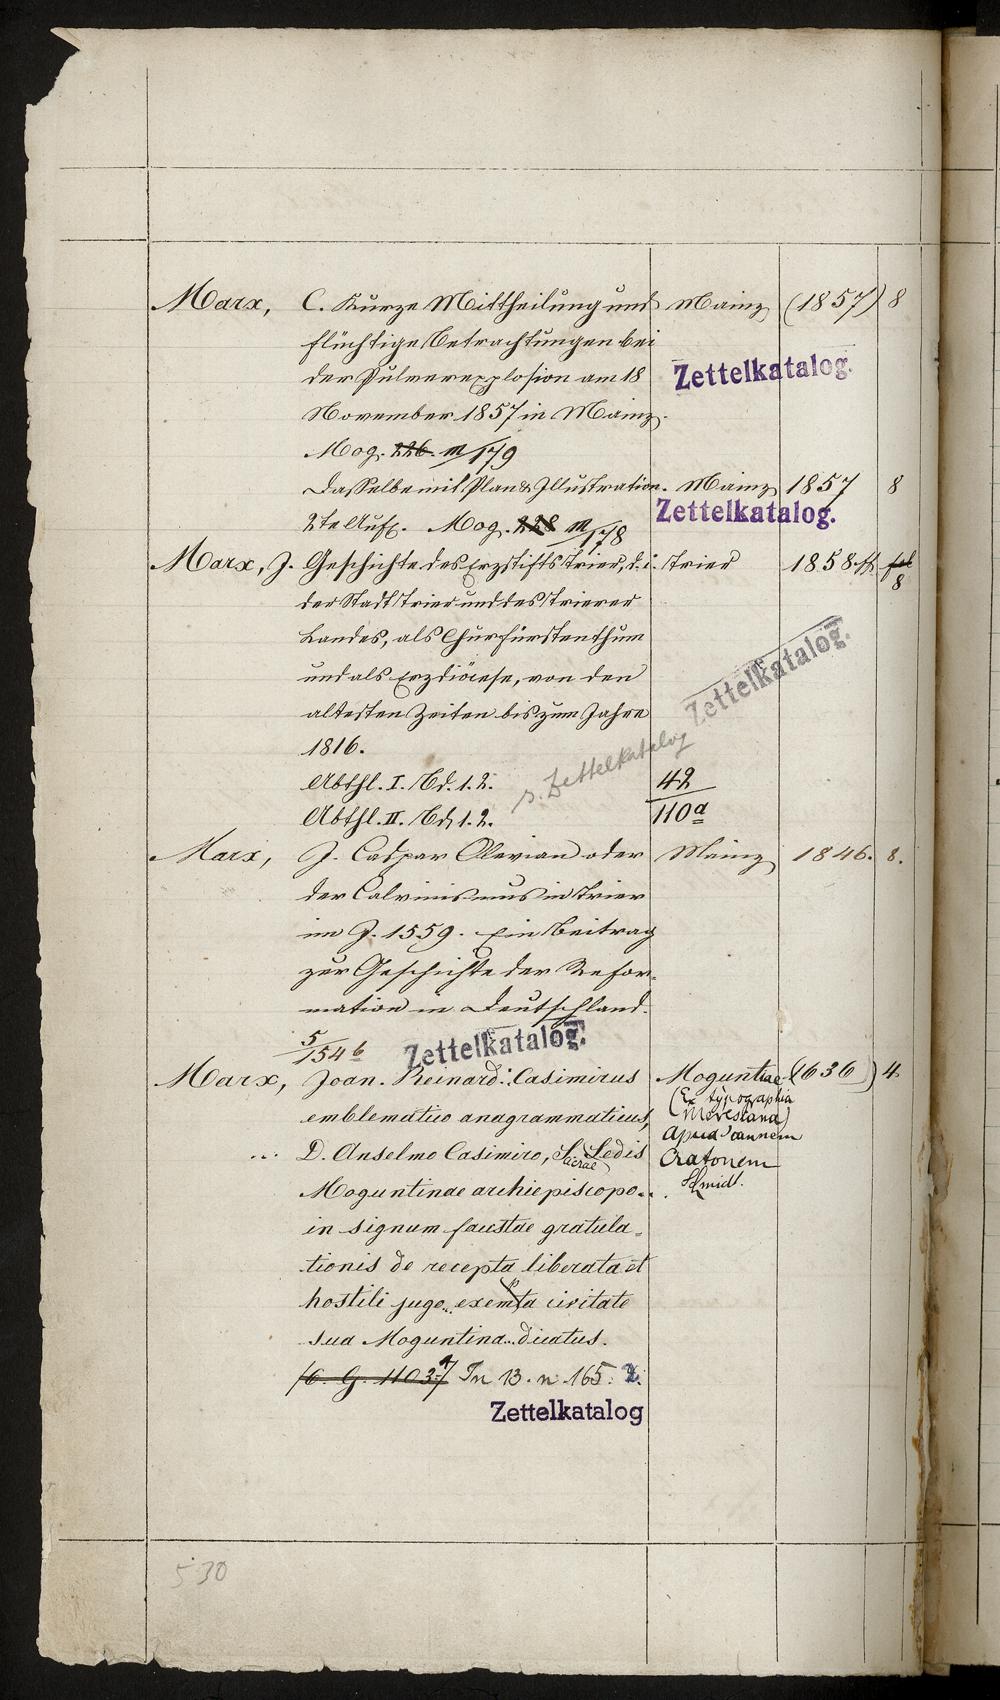 Marx, C. Kurze Mittheilung und Mainz (1857) 8
flüchtige Betrachtungen bei
der Pulverexplosion am 18 Zettelkatalog.
November 1857 in Mainz.
Mog. 226. m/179
Dasselbe mit Plan & Illustration. Mainz 1857 8
2te Aufl. Mog. 228 m/178 Zettelkatalog.
Marx, J. Geschichte des Erzstifts Trier, d. i. Trier 1858 ff. fol 8
der Stadt Trier und des Trierer
Landes, als Churfürstenthum
und als Erzdiöcese, von den
altesten Zeiten bis zum Jahre Zettelkatalog.
1816.
Abthl. I. Bd. 1. 2. s. Zettelkatalog 42
Abthl. II. Bd. 1. 2. 110a
Marx, J. Caspar Olevian oder Mainz 1846. 8.
der Calvinismus in Trier
im J. 1559. Ein Beitrag
zur Geschichte der Refor-
mation in Deutschland.
5/154b Zettelkatalog.
Marx, Joan. Reinard: Casimirus Moguntiae (1636) 4
emblematico anagrammaticus, (Ex typographia
Meresiana)
apud Joannem
... D. Anselmo Casimiro, Sacrae Sedis Cratonem
Schmidt.
Moguntinae archiepiscopo...
in signum faustae gratula-
tionis de recepta liberata et
hostili jugo.. exempta civitate
sua Moguntina.. dicatus.
In 13. n. 165. 2.
Zettelkatalog
530